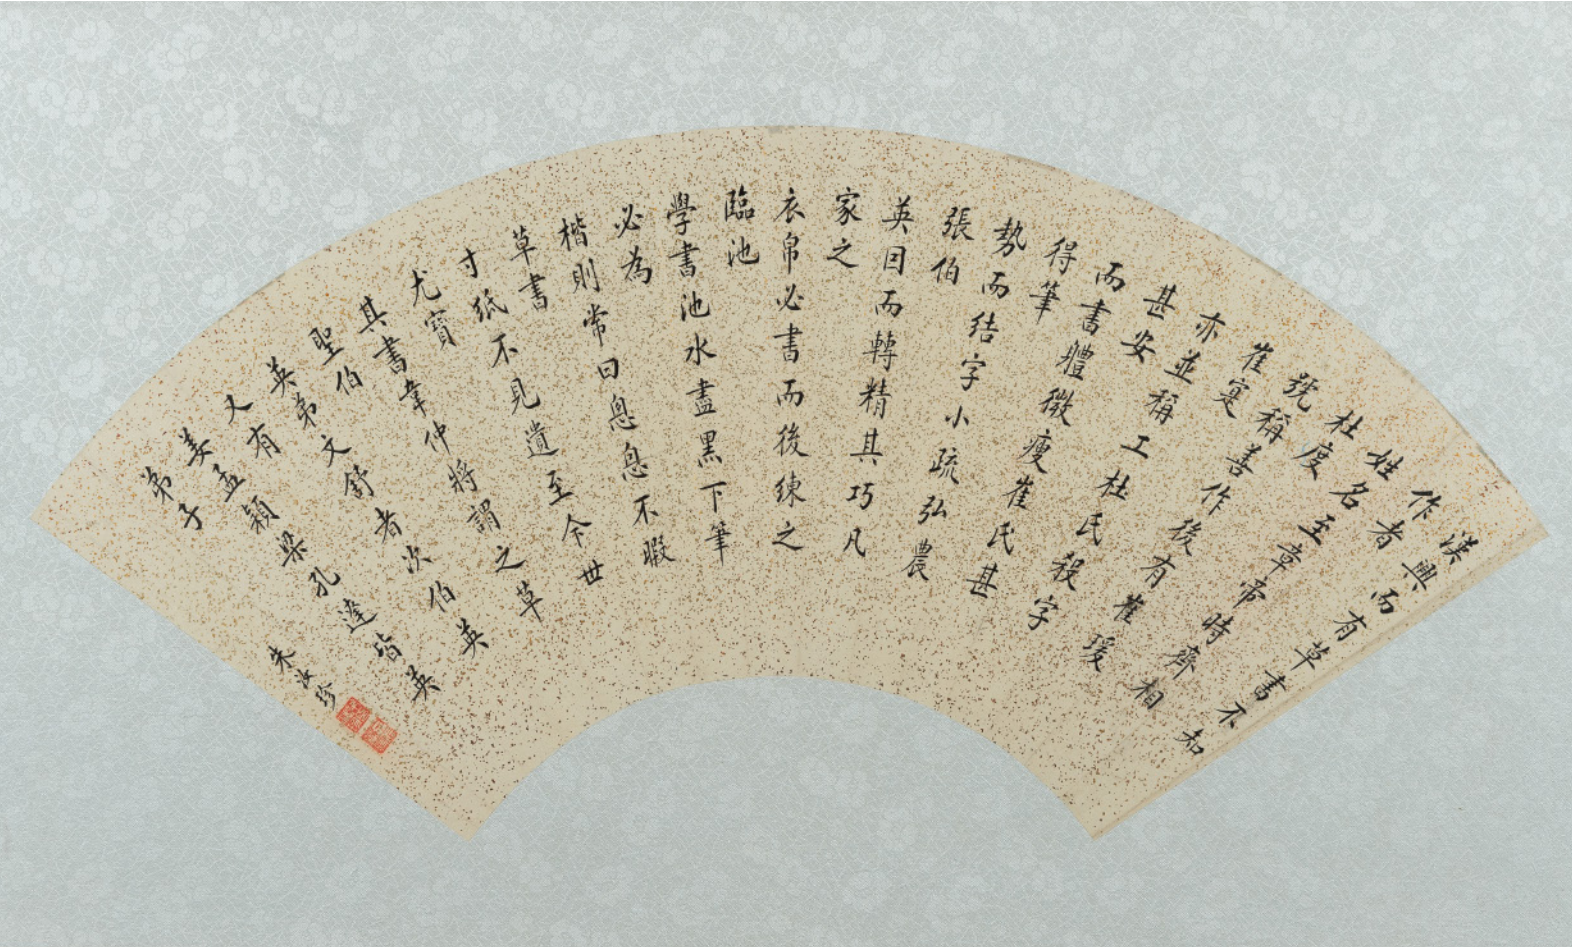 漢興而有草書不知
作者
姓名至章帝時齊相
杜度
號稱善作後有崔瑗
崔寔
亦並稱工杜氏殺字
甚安
而書體微瘦崔氏甚
得筆
勢而結字小疏弘農
張伯
英因而轉精其巧凡
家之
衣帛必書而後練之
臨池
學書池水盡黑下筆
必為
楷則常曰怱怱不暇
草書
寸紙不見遺至今世
尤寶
其書韋仲將謂之草
聖伯
英弟文舒者次伯英
又有
姜孟穎梁孔達皆英
弟子
朱汝珍